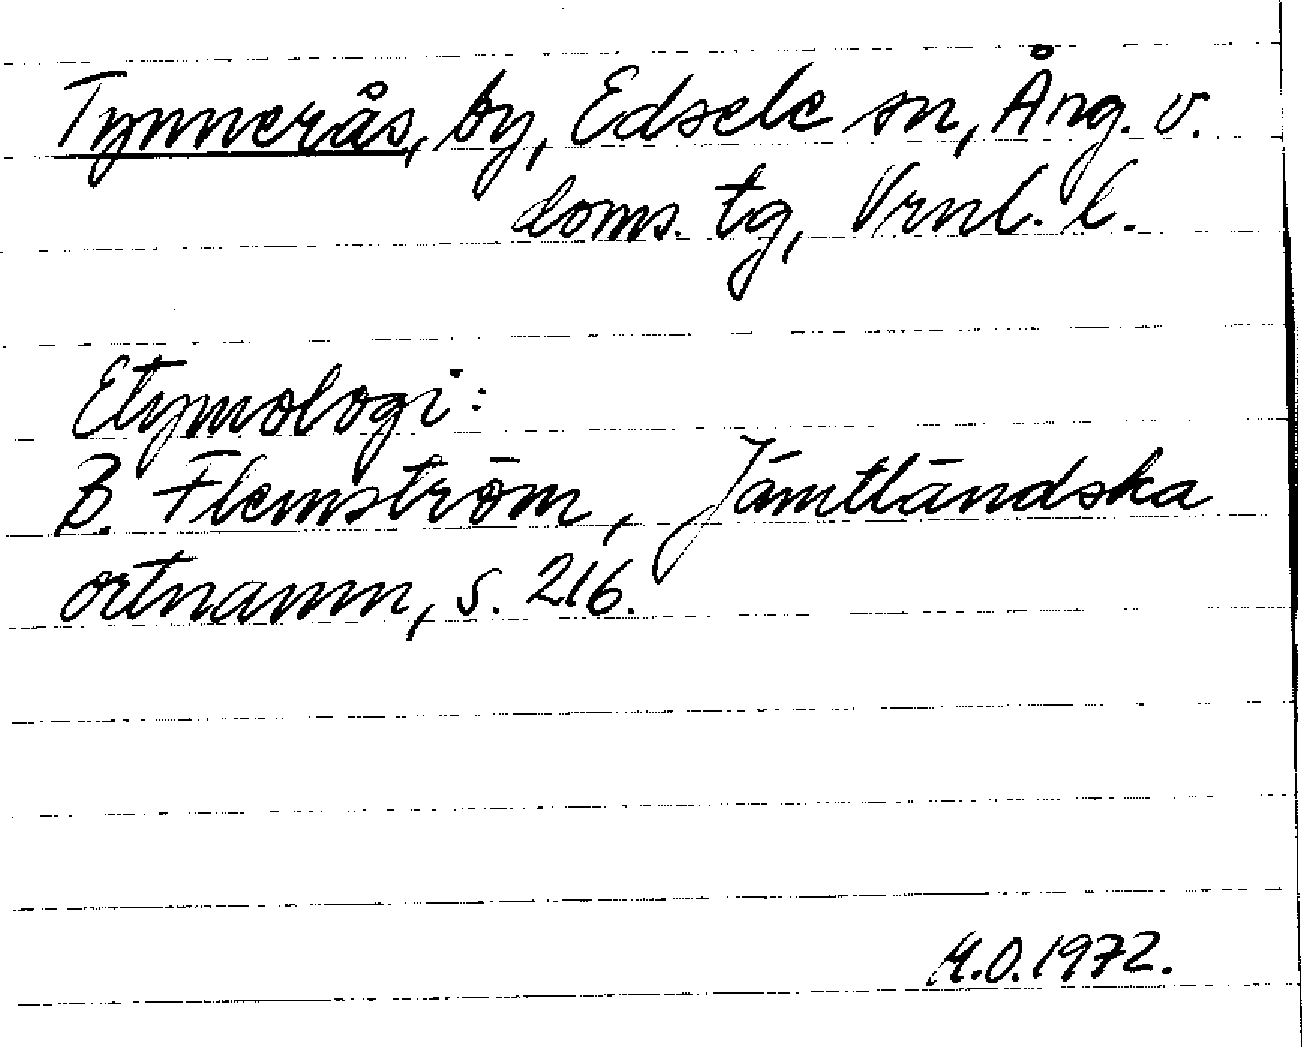 Tynnerås, by, Edsele sn, Ång. v.
doms. tg, Vrnl. l.
Etymologi:
B. Flemström, Jämtländska
ortnamn, s. 216.
M.O. 1972.